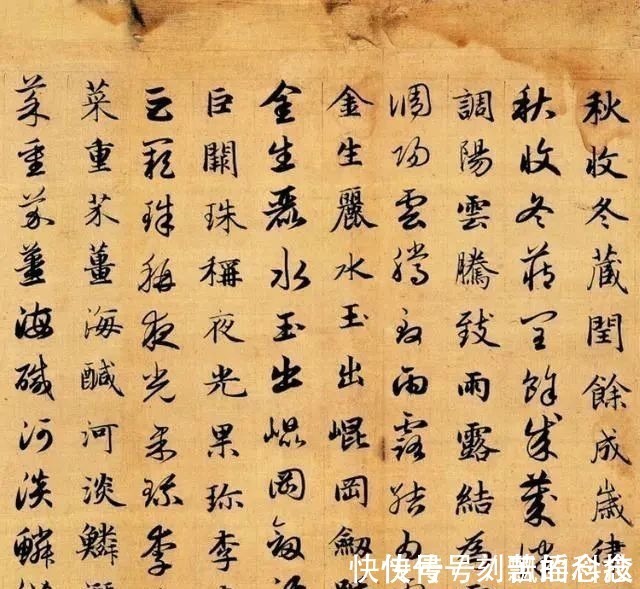 秋收冬蔵閏餘成嵗律
秋收冬蔵閏餘成歲律
調陽雲騰致雨露結為
調陽雲騰致雨露結為
金生麗水玉出崐岡劔
金生麗水玉出崐岡劔
巨闕珠稱夜光果珍李
巨闕珠稱夜光果珍李
菜重芥薑海鹹河淡鱗
菜重芥薑海鹹河淡鱗